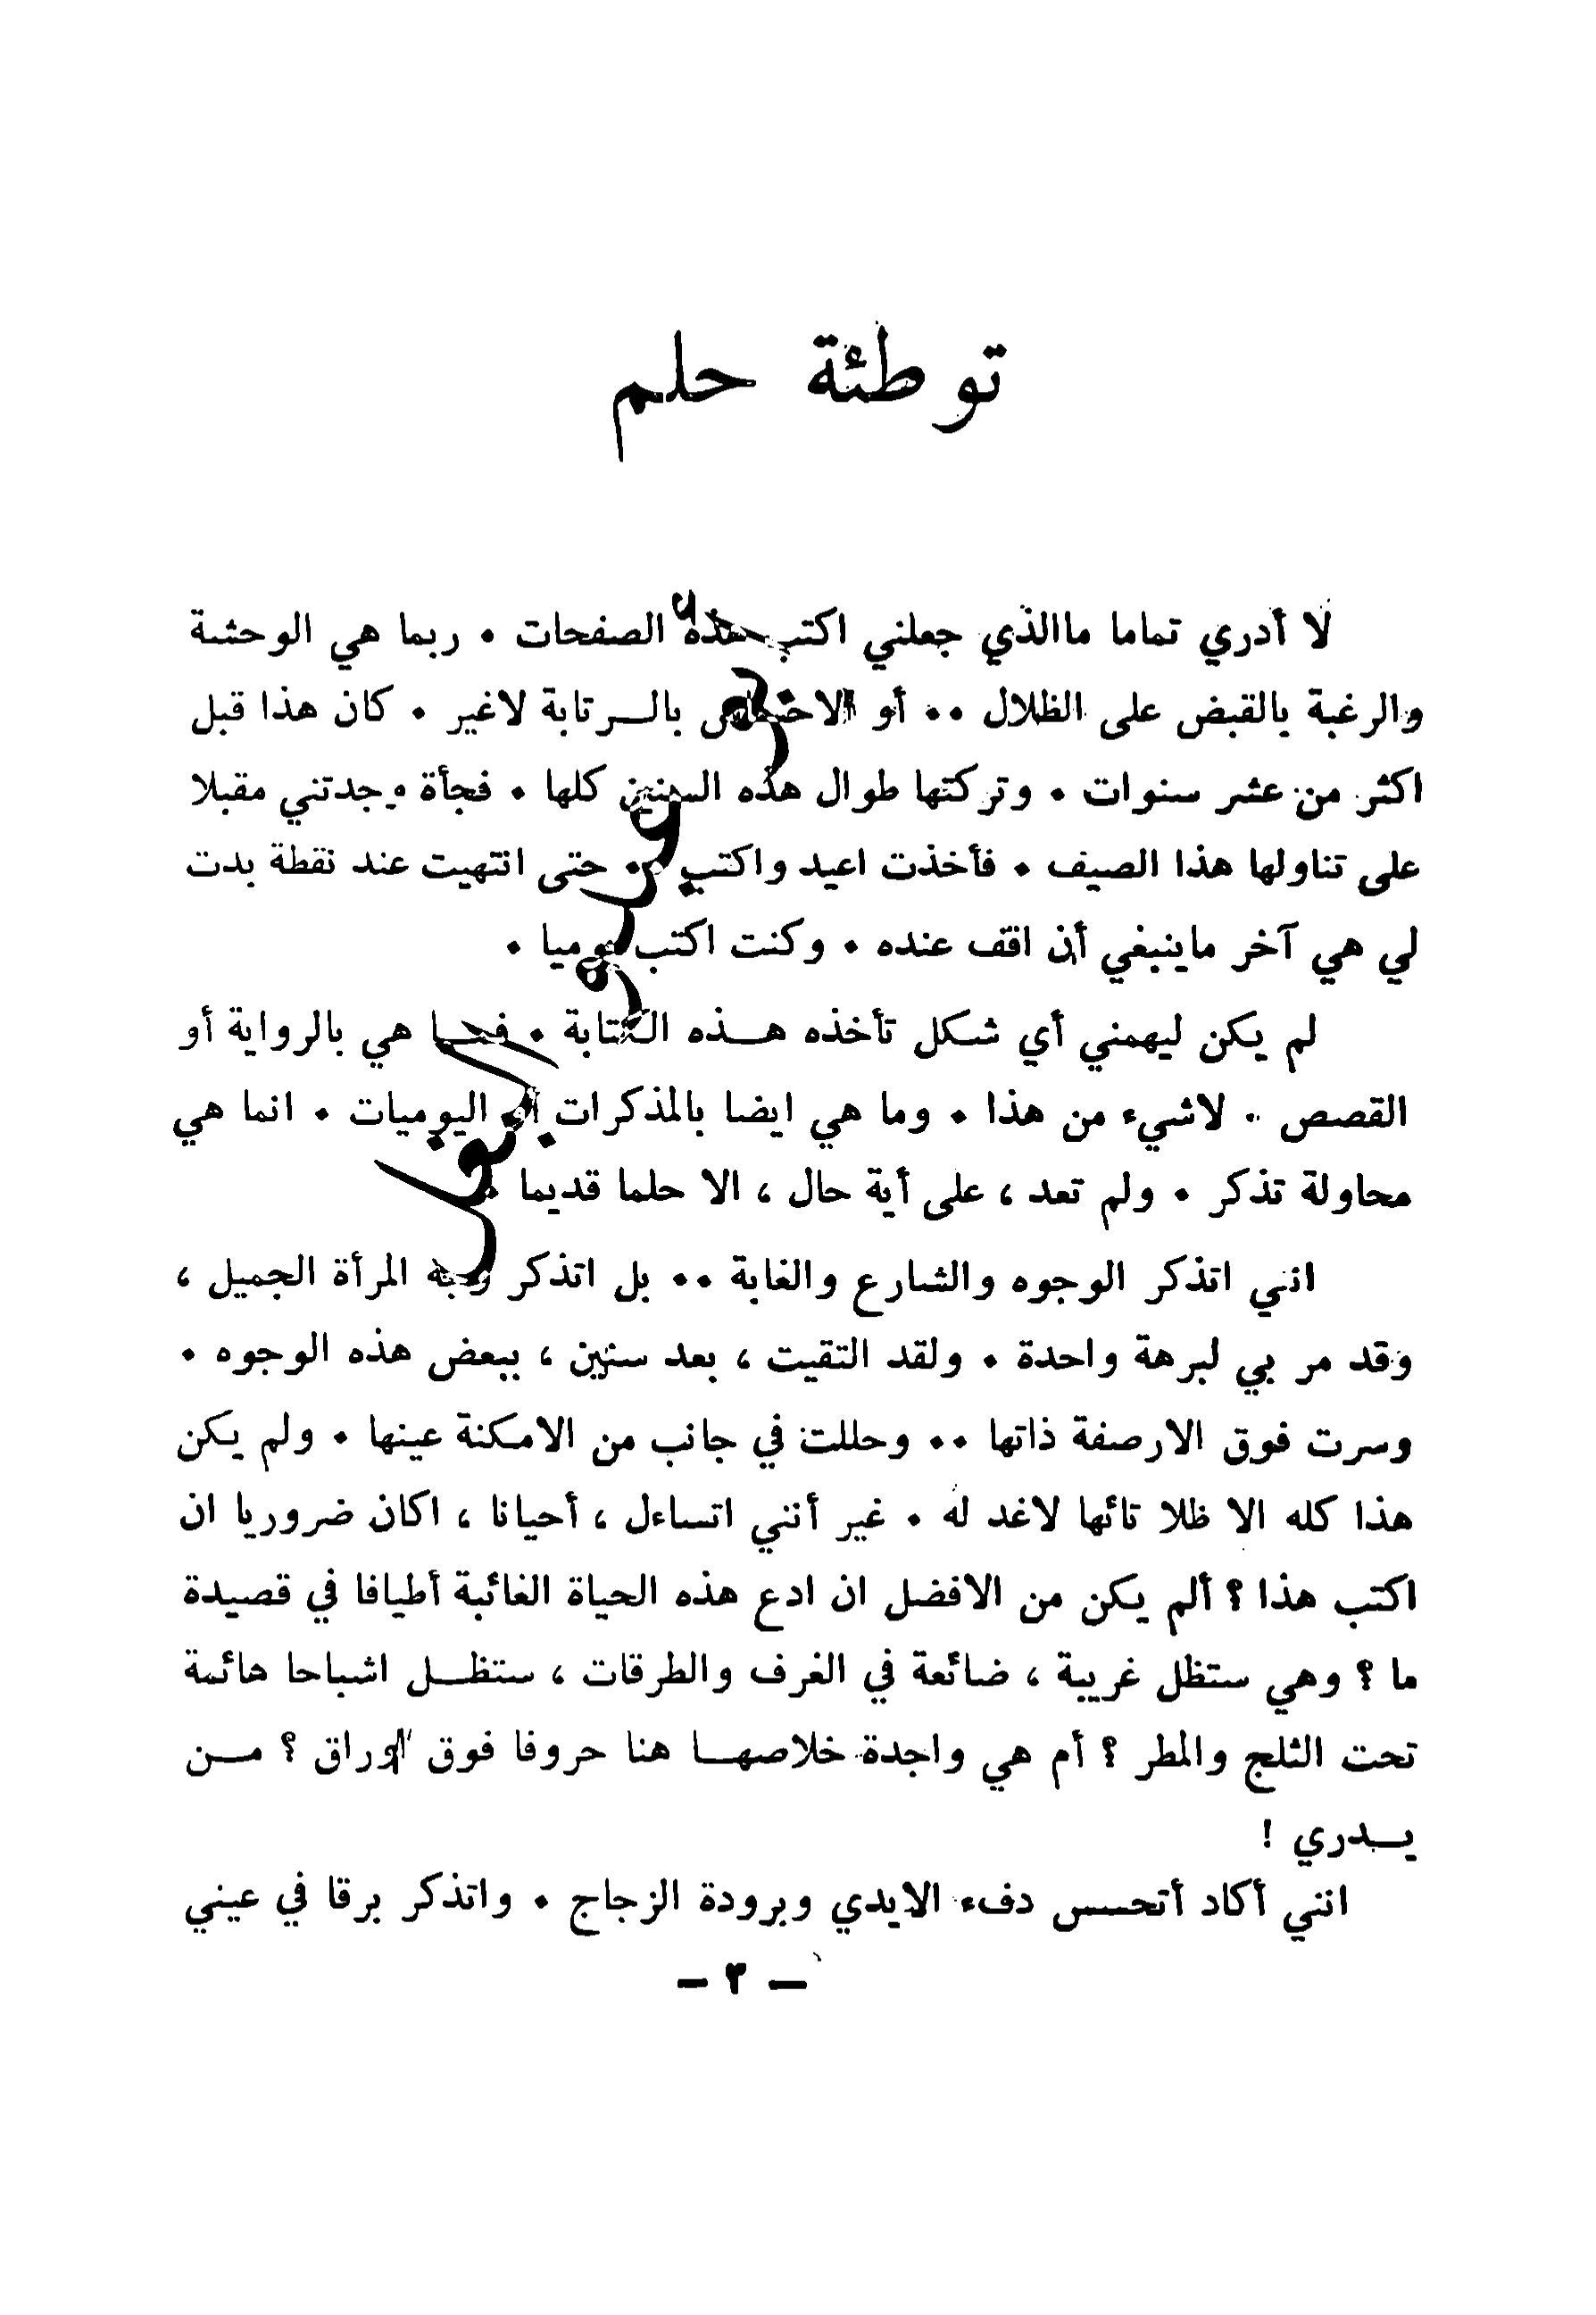 توطئة حلم
لا أدري تماما ماالذي جعلني اكتب هذه الصفحات . ربما هي الوحشة
والرغبة بالقبض على الظلال .. أو بالـرتابة لاغير . كان هذا قبل
اكثر من عشر سنوات . وتركتها طوال هذه السنين كلها . فجأة وجدتني مقبلا
على تناولها هذا الصيف . فأخذت اعيد واكتب .. حتى انتهيت عند نقطة بدت
لي هي آخر ماينبغي أن اقف عنده . وكنت اكتب يوميا .
لم يكن ليهمني أي شكل تأخذه هـذه الكتابة . فمـا هي بالرواية أو
القصص . لاشيء من هذا . وما هي ايضا بالمذكرات او اليوميات . انما هي
محاولة تذكر . ولم تعد ، على أية حال ، الا حلما قديما .
انني اتذكر الوجوه والشارع والغابة .. بل اتذكر وجه المرأة الجميل ،
وقد مر بي لبرهة واحدة . ولقد التقيت ، بعد سنين ، ببعض هذه الوجوه .
وسرت فوق الارصفة ذاتها .. وحللت في جانب من الامكنة عينها . ولم يكن
هذا كله الا ظلا تائها لاغد له . غير أنني اتساءل ، أحيانا ، اكان ضروريا ان
اكتب هذا ؟ ألم يكن من الافضل ان ادع هذه الحياة الغائبة أطيافا في قصيدة
ما ؟ وهي ستظل غريبة ، ضائعة في الغرف والطرقات ، ستظـل اشباحا هائمة
تحت الثلج والمطر ؟ أم هي واجدة خلاصهـا هنا حروفا فوق اوراق ؟ مـن
يـدري !
انني أكاد أتحسس دفء الايدي وبرودة الزجاج . واتذكر برقا في عيني
— ٣ —